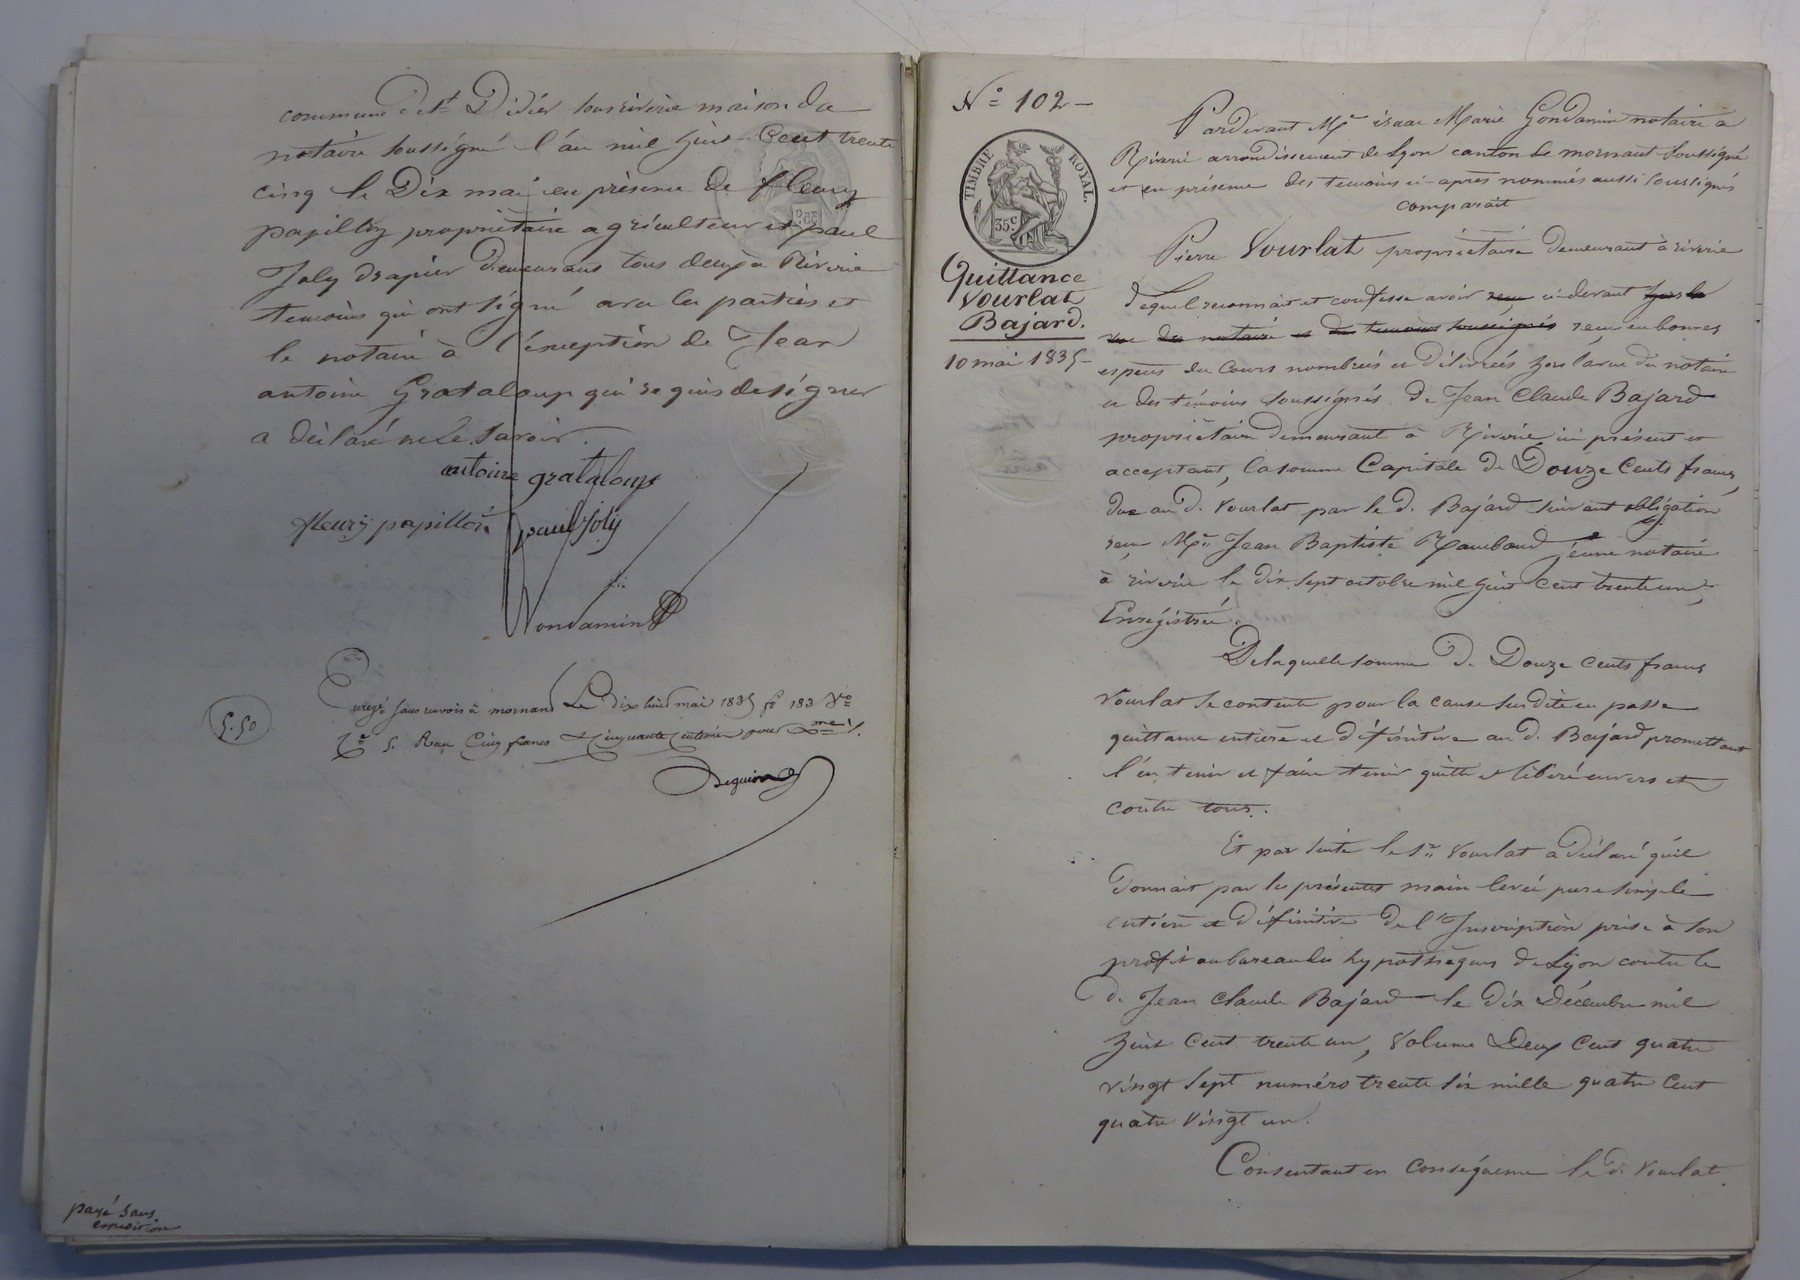 commune de St Didier sous riverie maison du
notaire soussigné l'an mil huit cent trente
cinq le Dix mai en présence de fleury
papillon propriétaire agriculteur et paul
Joly drapier demeurans tous deux à Riverie
temoins qui ont signé avec les parties et
le notaire à l'éxception de Jean
antoine Grataloup qui requis de signer
a déclaré ne le savoir.
antoine grataloup
fleury papillon paul Joly
Gondamin
Enregé sans renvois à mornant Le dix huit mai 1835 fo 183 Vo
Ce 5. Reçu Cinq francs Cinquante Centimes pour Dme
5.50
Deguin
payé sans
expedition
No 102 -
TIMBRE ROYAL.
35c
Quittance
Vourlat
Bajard.
10 mai 1835-
Pardevant Me isaac Marie Gondamin notaire à
Riverie arrondissement de Lyon canton de mornant soussigné
et en présence des temoins ci-après nommés aussi soussignés
comparait
Pierre Vourlat propriétaire demeurant à riverie
Lequel reconnait et confesse avoir reçu ci-devant hors la
vue du notaire et des temoins soussignés reçu en bonnes
espèces du cours nombrées et délivrées hors la vue du notaire
et des témoins soussignés de Jean Claude Bajard
propriétaire demeurant à Riverie ici présent et
acceptant, la somme Capitale de Douze Cents francs,
due au d. Vourlat par le d. Bajard suivant obligation
reçu Me Jean Baptiste Raimbaud jeune notaire
à riverie le dix sept octobre mil huit cent trente un,
Enrégistrée.
De laquelle somme de Douze cents francs
Vourlat se contente pour la cause susdite en passe
quittance entière et définitive au d. Bajard promettant
l'en tenir et faire tenir quitte et libéré envers et
contre tous.
Et par suite le sr Vourlat a déclaré qu'il
donnait par les présentes main levée pure simple
entière et définitive de l'Inscription prise à son
profit au bureau des hypothèques de Lyon contre le
d. Jean Claude Bajard le dix Décembre mil
huit cent trente un, Volume Deux Cent quatre
vingt sept numéro trente six mille quatre Cent
quatre vingt un.
Consentant en conséquence le d. Vourlat